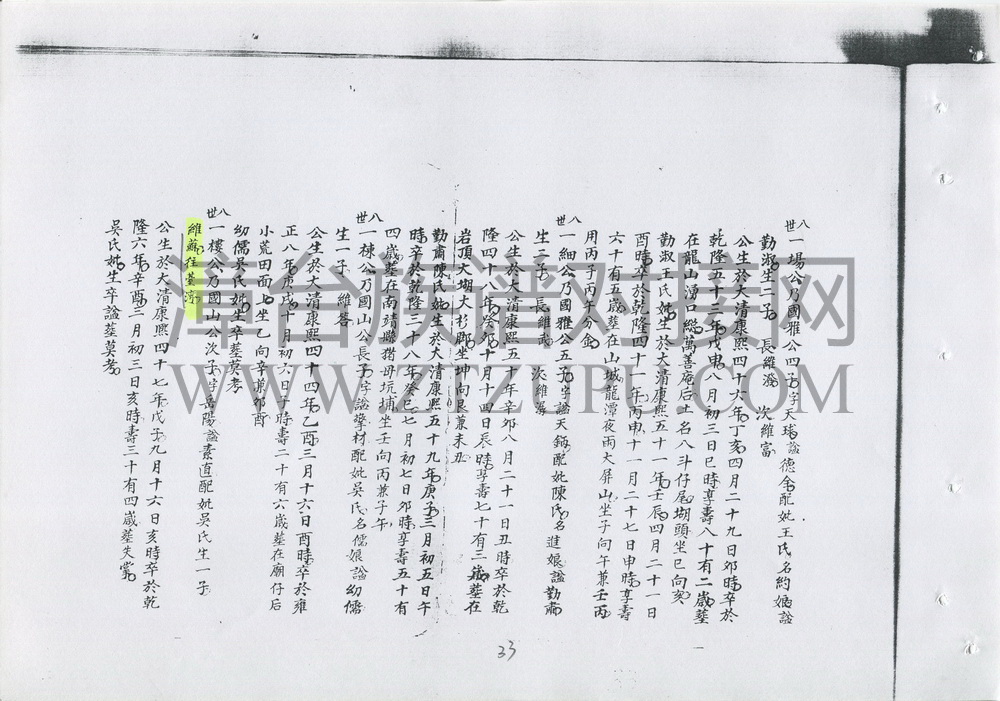 八世
一場公乃國雅公四子字天球諡德金配妣王氏名約娘諡
勤淑生二子 長維澄 次維富
公生於大清康熙四十六年丁亥四月二十九日卯時卒於
乾隆五十三年戊申八月初三日巳時享壽八十有二歲墓
在龍山湧口總萬善庵后土名八斗仔尾壠頭坐巳向亥
勤淑王氏妣生於大清康熙五十一年壬辰四月二十一日
酉時卒於乾隆四十一年丙申十一月二十七日申時享壽
六十有五歲墓在山城龍潭夜雨大屏山坐子向午兼壬丙
用丙子丙午分金
八世
一細公乃國雅公五子字諡天錫配妣陳氏名進娘諡勤肅
生二子 長維武 次維
公生於大清康熙五十年辛卯八月二十一日丑時卒於乾
隆四十八年癸卯十月十四日辰時享壽七十有三歲墓在
岩頂大壠大杉郡坐坤向艮兼未丑
勤肅陳氏妣生於大清康熙五十九年庚子三月初五日午
時卒於乾隆三十八年癸巳七月初七日卯時享壽五十有
四歲墓在南靖縣 毋坑埔坐壬向丙兼子午
八世
一棟公乃國山公長子字諡肇材配妣吳氏名儒娘諡幼儒
生一子 維答
公生於大清康熙四十四年乙酉三月十六日酉時卒於雍
正八年庚戌十月初六日子時壽二十有六歲墓在廟仔后
小荒田面上坐乙向辛兼卯酉
幼儒吳氏妣生卒墓莫考
八世
一樓公乃國山公次子字岳陽諡素直配妣吳氏生一子
維蘇往臺灣
公生於大清康熙四十七年戊子九月十六日亥時卒於乾
隆六年辛酉三月初三日亥時壽三十有四歲墓失掌
吳氏妣生卒諡墓莫考
33
漳台族譜對接網
WWW.ZTZUPU.COM